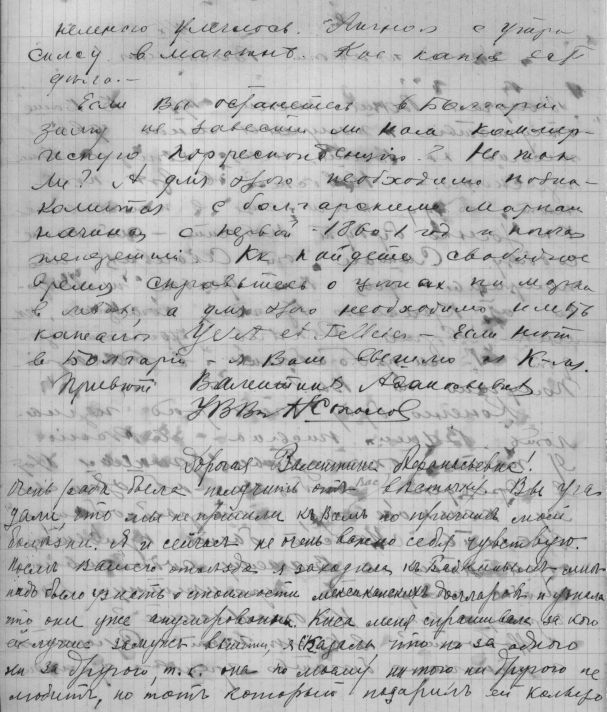 немного улеглось. Лично я с утра
сижу в магазинѣ.
дѣло.—
Если Вы останетесь в Болгарiи
не завести ли нам коммер-
ческую корреспонденцiю? Не так
ли? А для этого необходимо позна-
комиться с болгарскими марками
начиная с первой - 1860 год и
Как найдете свободное
время справьтесь о цѣнах на марки
в левах, а для этого необходимо имѣть
каталог Yvert et Tellier — Если нѣт
в Болгарiи — я Вам вышлю из К-ля.
Привѣт Валентинѣ Афанасьевнѣ
УВВ
Дорогая Валентина Афанасьевна!
Очень рада была получить отъ Васъ Вы уга-
дали, что мы не пришли къ Вамъ по причинѣ моей
болѣзни. Я и сейчасъ не очень важно себя чувствую.
Послѣ Вашего отъѣзда я заходила къ мнѣ
надо было узнать о стоимости мексиканскихъ долларовъ и узнала
что они уже анулированы. Киса меня спрашивала за кого
ей лучше замужъ выйти я сказала что ни за одного
ни за другого, т.к. она по моему ни того ни другого не
любитъ, но тотъ который подарилъ ей кольцо